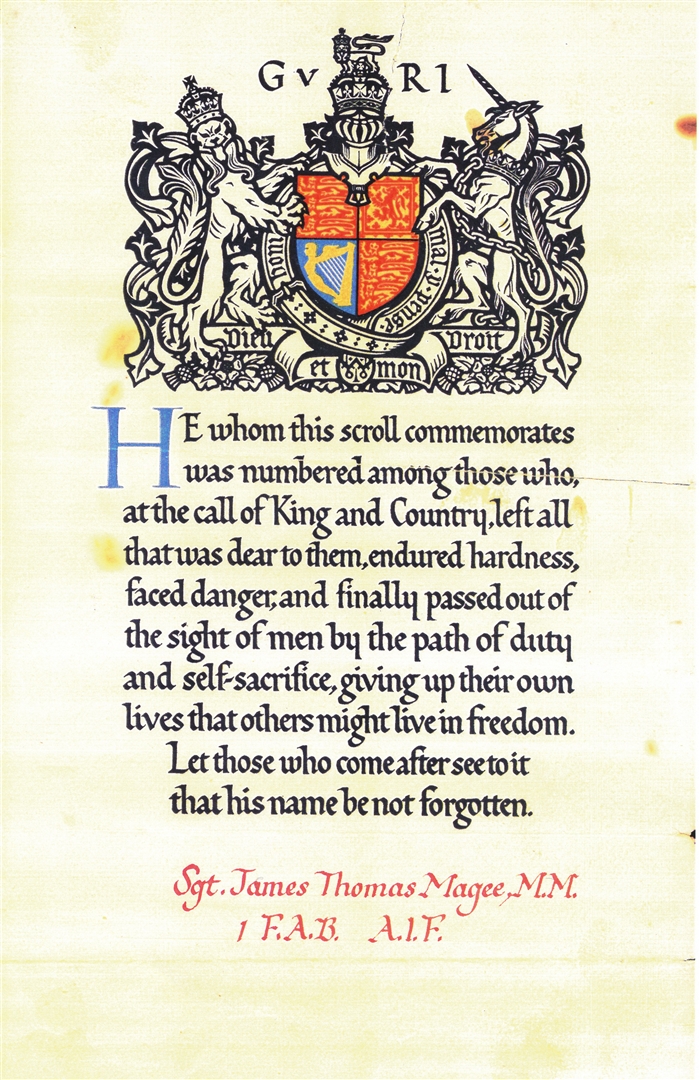 G V R I
Honi soit qui mal y pense
Dieu et mon Droit
HE whom this scroll commemorates
was numbered among those who,
at the call of King and Country, left all
that was dear to them, endured hardness,
faced danger, and finally passed out of
the sight of men by the path of duty
and self-sacrifice, giving up their own
lives that others might live in freedom.
Let those who come after see to it
that his name be not forgotten.
Sgt. James Thomas Magee, M.M.
1 F.A.B. A.I.F.